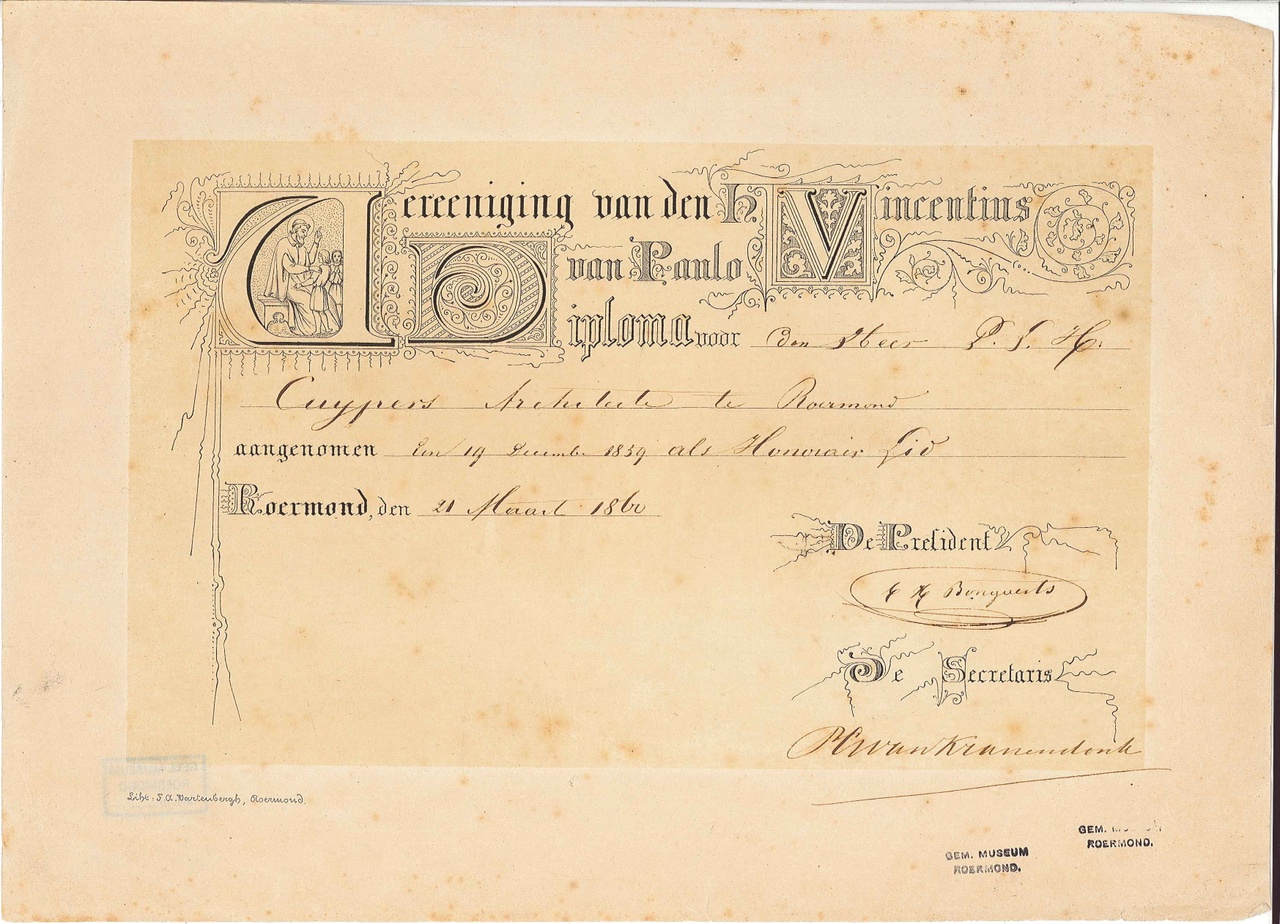 Vereeniging van den H Vincentius
van Paulo
Diploma voor den Heer P. J. H.
Cuypers Architecte te Roermond
aangenomen den 19 December 1859 als Honorair Lid
Roermond, den 21 Maart 1860
De President
Bongaerts
De Secretaris
van Kranendonk
Lith: F. A. Wartenbergh, Roermond.
GEM. MUSEUM
ROERMOND.
GEM.
ROERMOND.